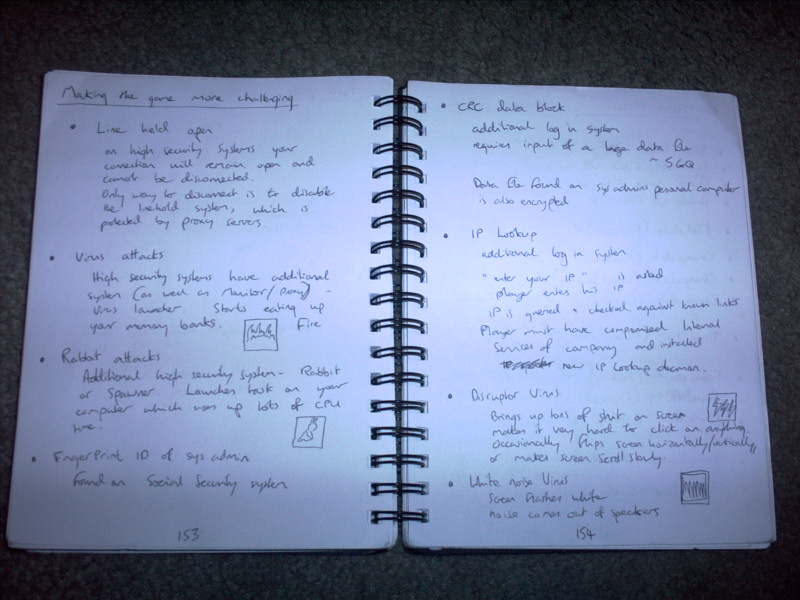 Making the game more challenging
• Line held open
on high security systems your
connection will remain open and
cannot be disconnected.
Only way to disconnect is to disable
the linehold system, which is
protected by proxy servers.
• Virus attacks
High security systems have additional
system (as well as Monitor/Proxy) -
Virus launcher. Starts eating up
your memory banks. Fire
• Rabbit attacks
Additional high security system - Rabbit
or Spawner. Launches task on your
computer which uses up lots of CPU
time.
• FingerPrint ID of sys admin
Found on Social Security system
153
• CRC data block
additional log in system
requires input of a large data file
~ 5GQ
Data file found on sys admins personal computer
is also encrypted
• IP Lookup
additional log in system
"enter your IP" is asked
player enters his IP
IP is queried + checked against known links
Player must have compromised Internal
Services of company and installed
new IP Lookup
• Disruptor Virus
Brings up loads of shit on screen
makes it very hard to click on anything.
Occasionally flips screen horizontally/vertically,
or makes screen scroll slowly.
• White noise Virus
Screen flashes white
noise comes out of speakers
154